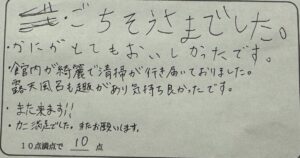 ・ごちそうさまでした。
・かにがとてもおいしかったです。
・館内が綺麗で清掃が行き届いておりました。
露天風呂も趣があり気持ち良かったです。
・また来ます!!
・カニ満足でした。またお願いします。
10点満点で 10 点